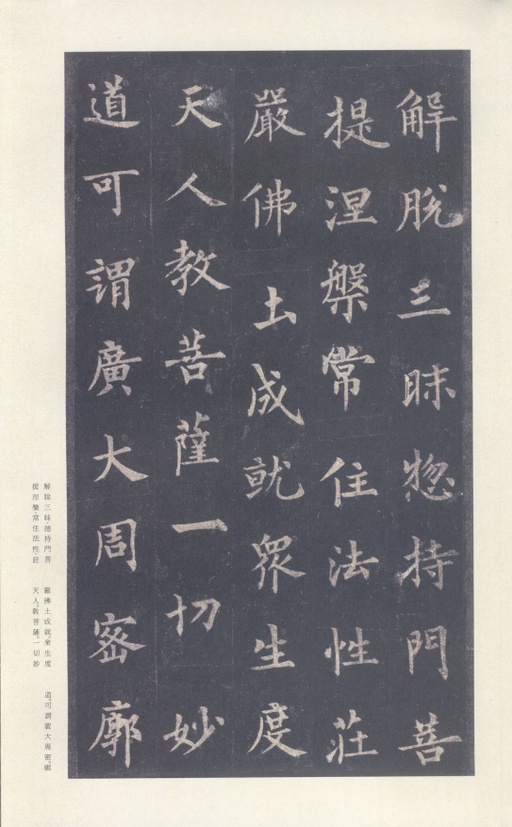 解脫三昧惣持門菩
提涅槃常住法性莊
嚴佛土成就眾生度
天人教菩薩一切妙
道可謂廣大周密廓
解脫三昧、摠持門、菩
提涅槃、常住法性、莊
嚴佛土、成就眾生、度
天人、教菩薩、一切妙
道、可謂廣大周密、廓